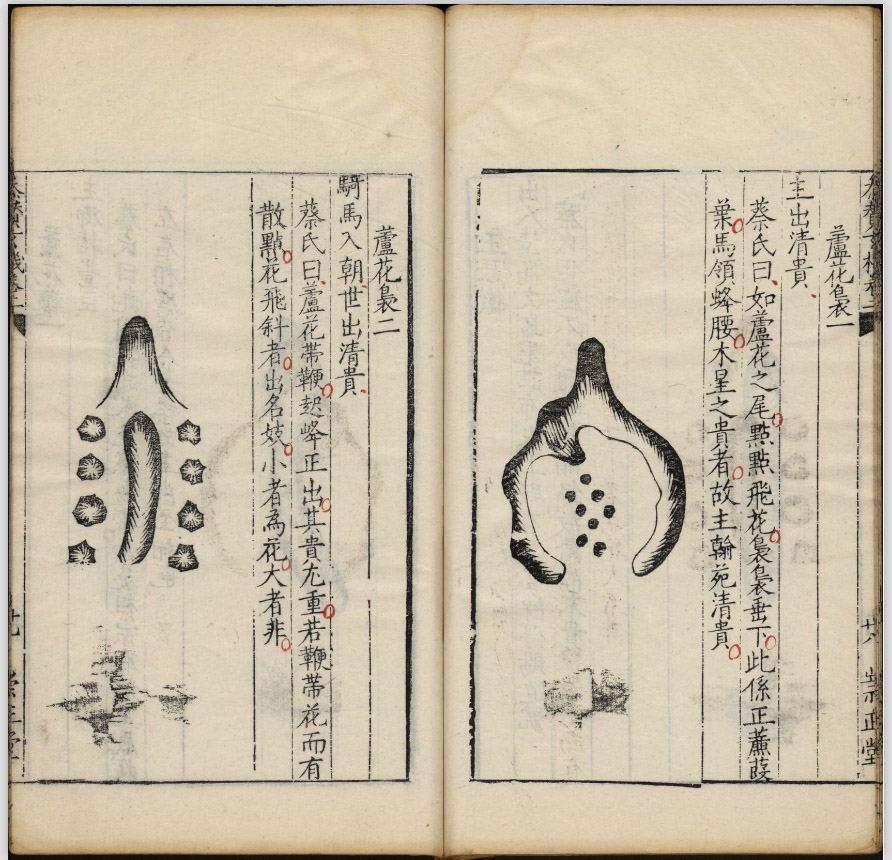 蘆花裊一
主出清貴
蔡氏曰如蘆花之尾點點飛花裊裊垂下此係正薦蔭
葉馬領蜂腰木星之貴者故主翰苑清貴
廿八
崇正堂
蘆花裊二
騎馬入朝世出清貴
蔡氏曰蘆花帶鞭起峰正出其貴尤重若鞭帶花而有
散點花飛斜者出名妓小者為花大者非